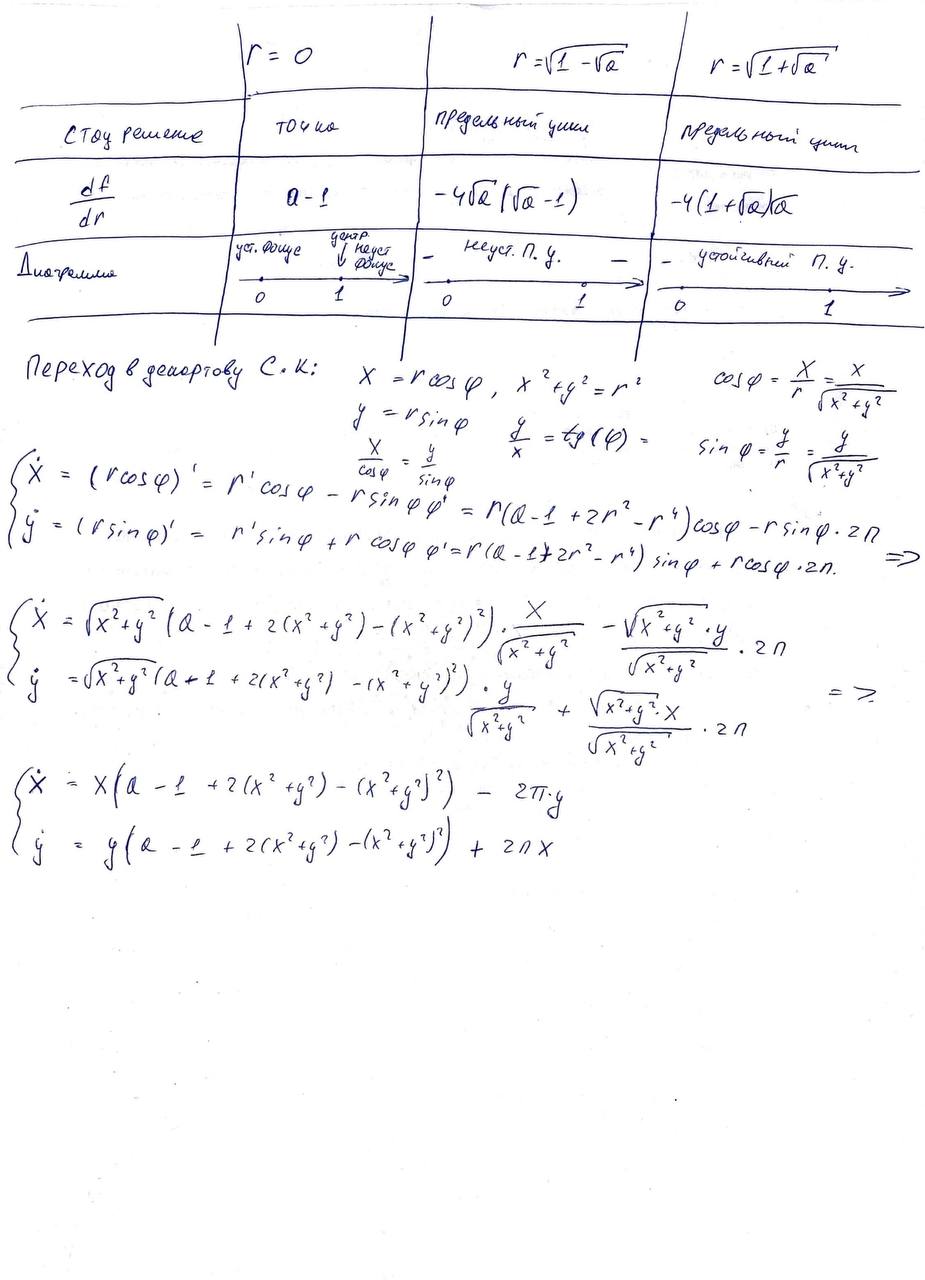 r = 0 r = √(1 - √a) r = √(1 + √a)
Стац решение точка предельный цикл предельный цикл
df/dr a - 1 -4√a (√a - 1) -4(1 + √a)√a
Диаграмма уст. фокус центр. ↓ неуст фокус - неуст. П. Ц. - - устойчивый П. Ц.
0 1 0 1 0 1
Переход в декартову С.К: x = r cos φ, x² + y² = r² cos φ = x/r = x/√(x² + y²)
y = r sin φ y/x = tg(φ) = sin φ = y/r = y/√(x² + y²)
x/cos φ = y/sin φ
ẋ = (r cos φ)' = r' cos φ - r sin φ φ' = r(a - 1 + 2r² - r⁴) cos φ - r sin φ · 2π
ẏ = (r sin φ)' = r' sin φ + r cos φ φ' = r(a - 1 + 2r² - r⁴) sin φ + r cos φ · 2π. =>
ẋ = √(x² + y²) (a - 1 + 2(x² + y²) - (x² + y²)²) · x/√(x² + y²) - √(x² + y²) · y/√(x² + y²) · 2π
ẏ = √(x² + y²) (a - 1 + 2(x² + y²) - (x² + y²)²) · y/√(x² + y²) + √(x² + y²) · x/√(x² + y²) · 2π =>
ẋ = x(a - 1 + 2(x² + y²) - (x² + y²)²) - 2π · y
ẏ = y(a - 1 + 2(x² + y²) - (x² + y²)²) + 2πx